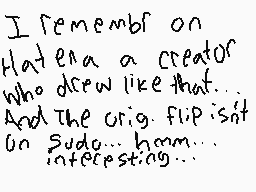 I remembr on
Hatena a creator
who drew like that...
And The orig. flip isn't
on Sudo... hmm...
interesting...